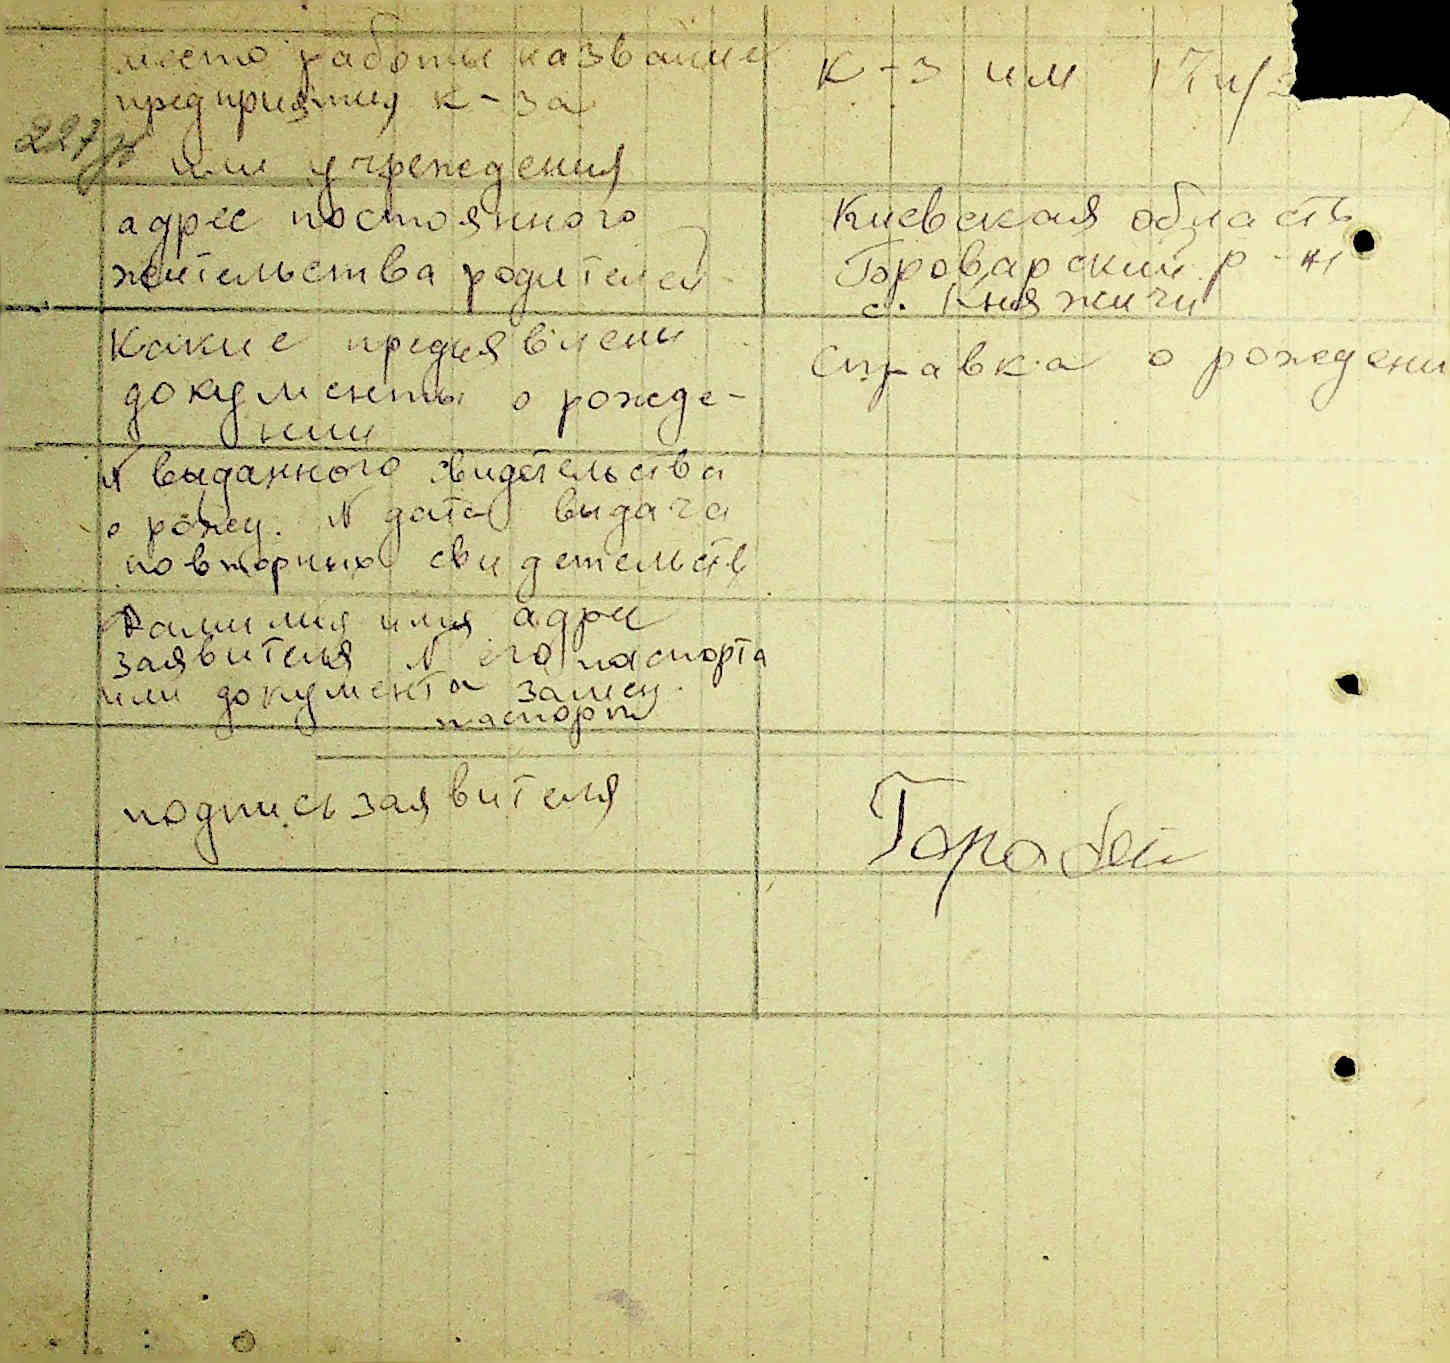 место работы название
предприятия к-за
или учреждения
к-з им 17 п/з
адрес постоянного
жительства родителей
Киевская область
Броварский р-н
с. Княжичи
Какие предъявлени
документы о рожде-
нии
Справка о рождени
N выданного свидетельства
о рожд. N дата выдача
повторных свидетельств
Фамилия имя адрес
заявителя N его паспорта
или документа замен.
паспорт
подпись заявителя